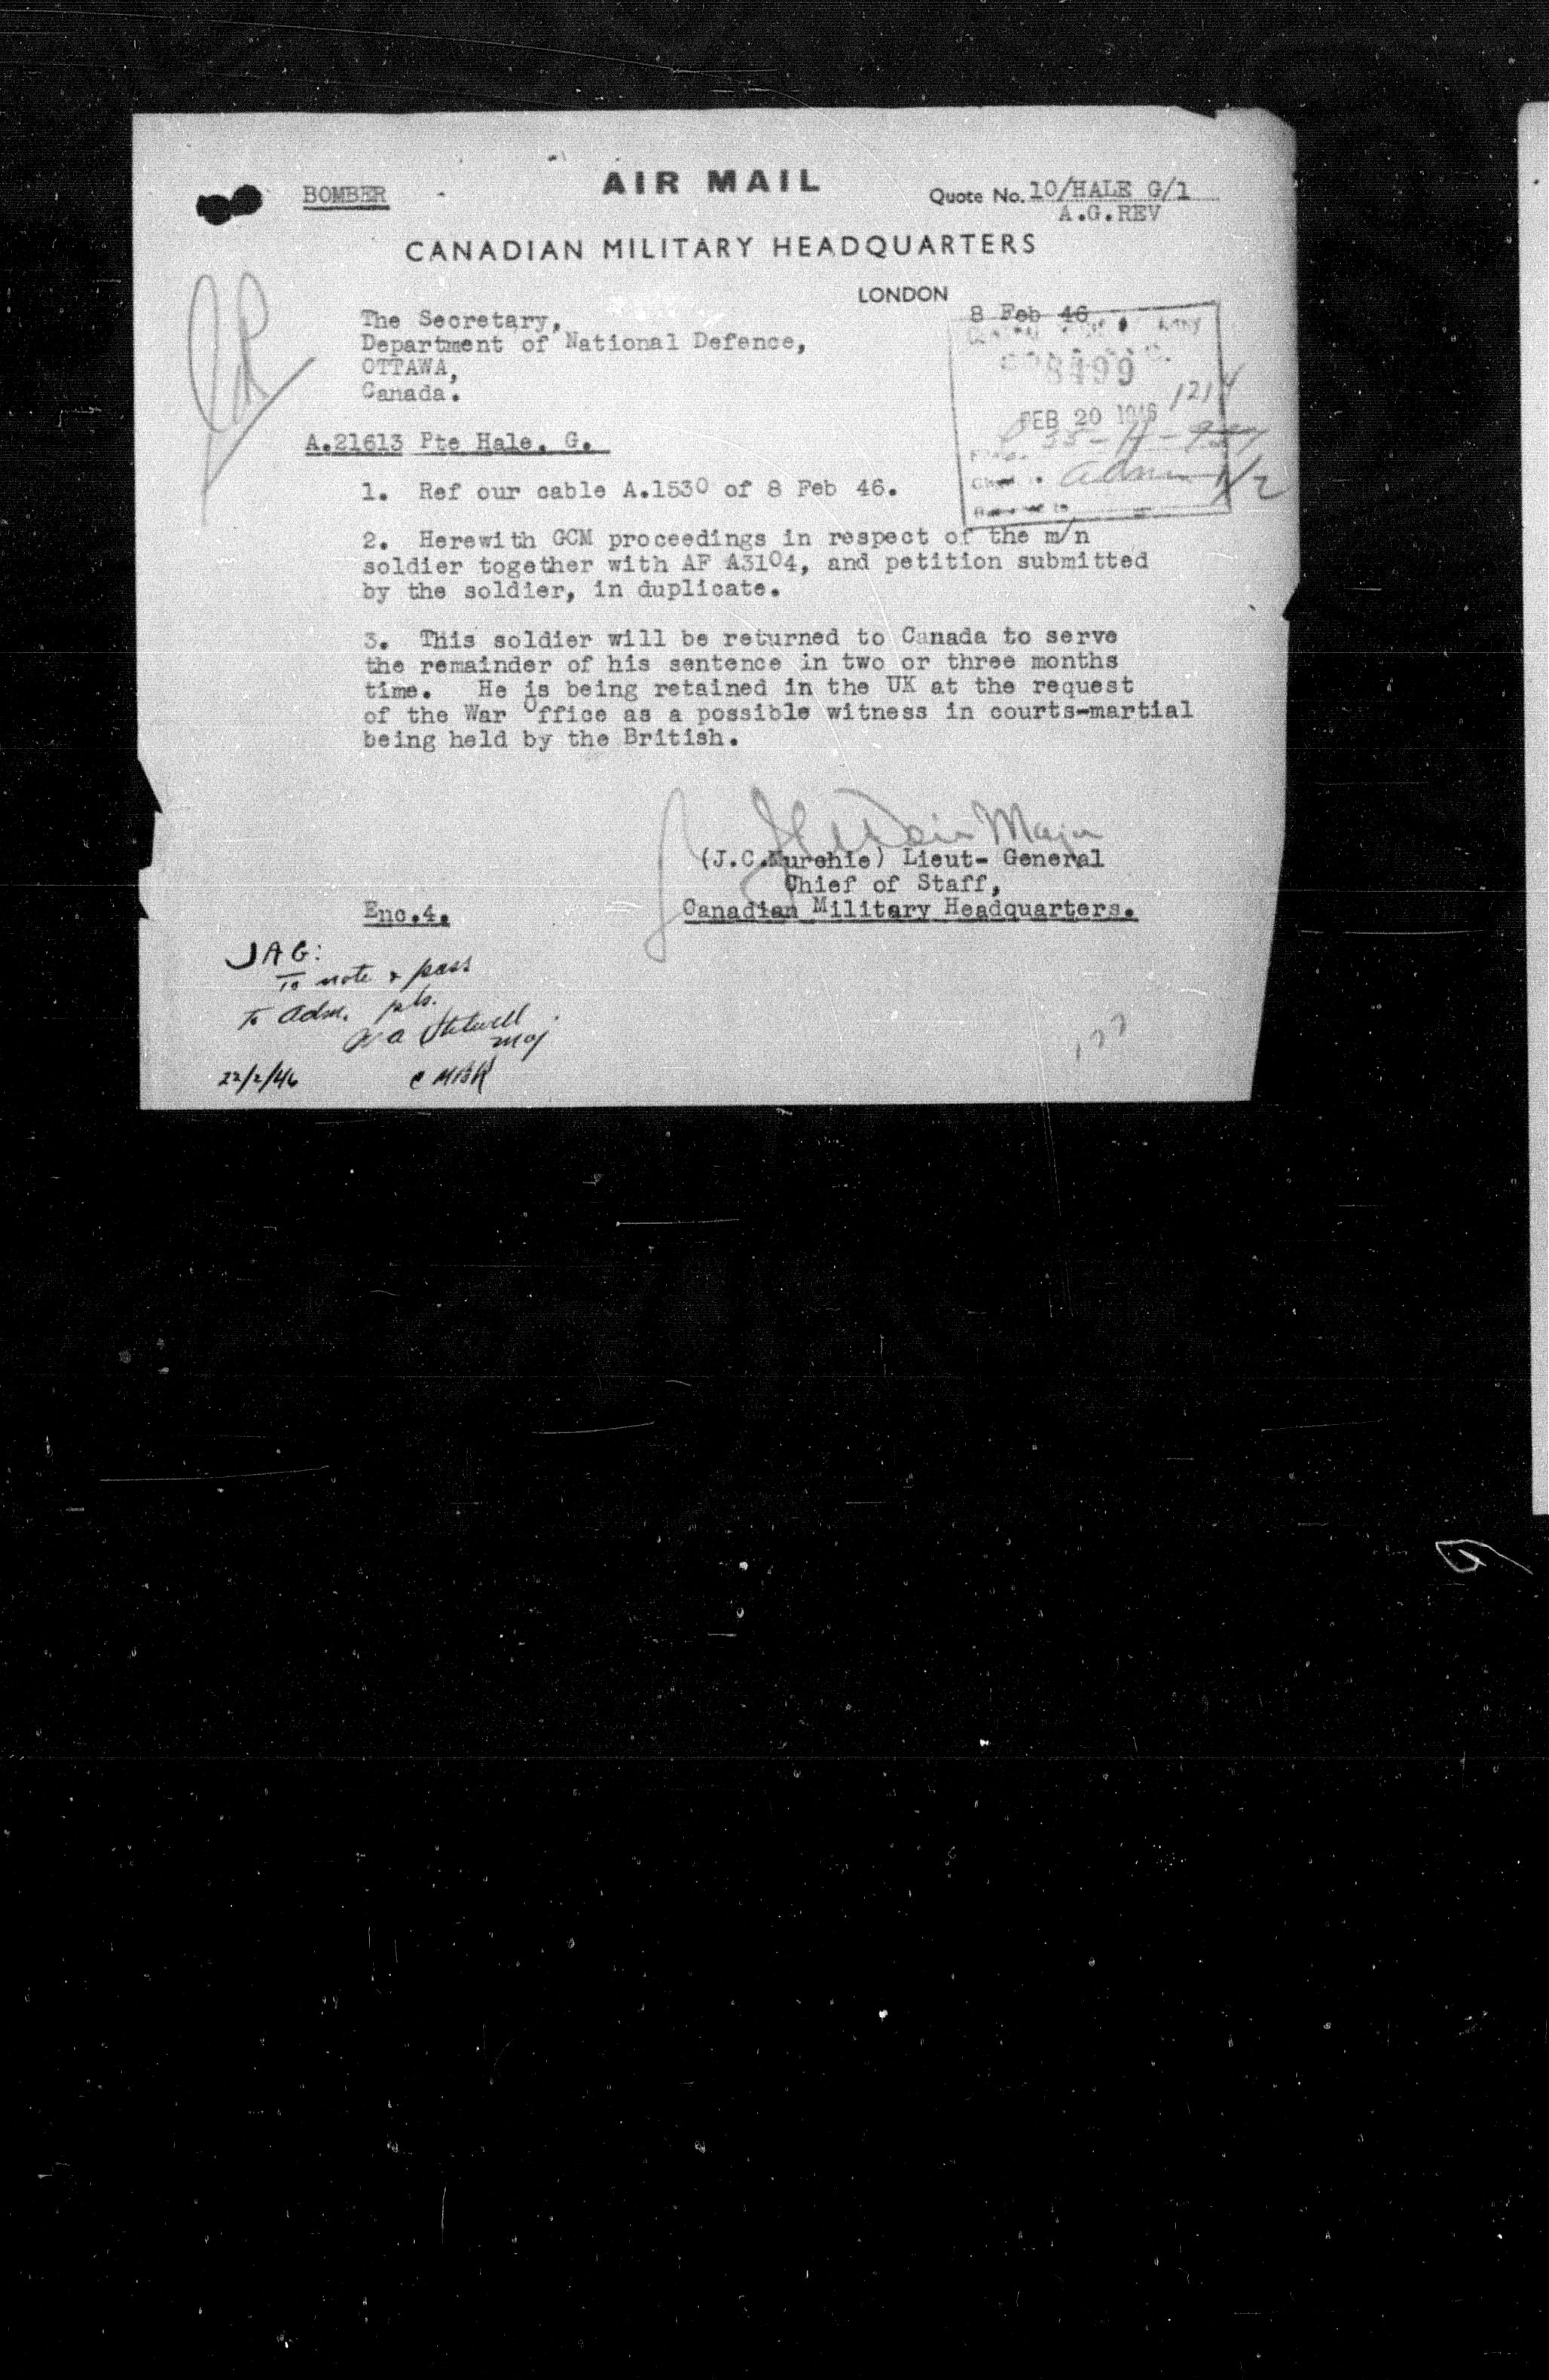 BOMBER
AIR MAIL
Quote No. 10/HALE G/1
A.G.REV
CANADIAN MILITARY HEADQUARTERS
LONDON
8 Feb 46
The Secretary,
Department of National Defence,
OTTAWA,
Canada.
8499
1214
FEB 20 1946
A.21613 Pte Hale. G.
Adm 1/2
1. Ref our cable A.1530 of 8 Feb 46.
2. Herewith GCM proceedings in respect of the m/n
soldier together with AF A3104, and petition submitted
by the soldier, in duplicate.
3. This soldier will be returned to Canada to serve
the remainder of his sentence in two or three months
time. He is being retained in the UK at the request
of the War Office as a possible witness in courts-martial
being held by the British.
Major
(J.C.Murchie) Lieut- General
Chief of Staff,
Canadian Military Headquarters.
Enc.4.
JAG:
To note & pass
to Adm. pls.
Maj
22/2/46
177